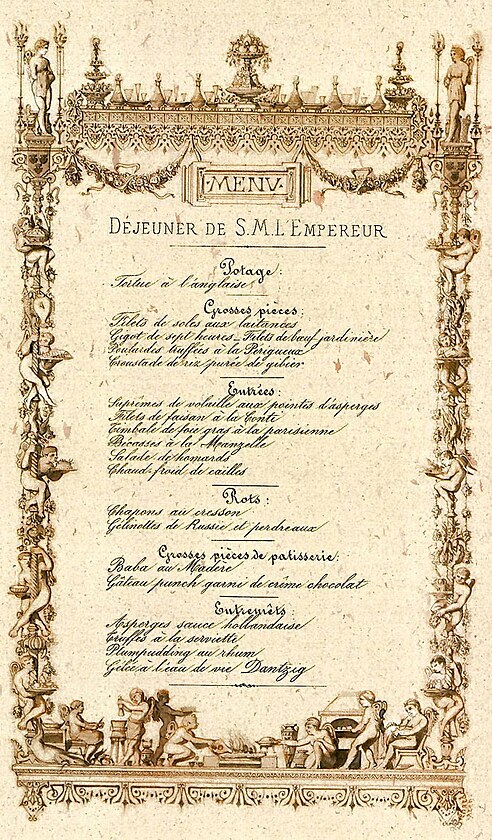 MENU
DÉJEUNER DE S.M.L'EMPEREUR
Potage:
Tortue à l'anglaise
Grosses pièces:
Filets de soles aux laitances
Gigot de sept heures_ Filets de bœuf jardinière
Poulardes truffées à la Périgueux
Croustade de riz purée de gibier
Entrées:
Suprêmes de volaille aux pointes d'asperges
Filets de faisan à la Conte
Timbale de foie gras à la parisienne
Bécasses à la Manzelle
Salade de homards
Chaud-froid de cailles
Rots:
Chapons au cresson
Gélinottes de Russie et perdreaux
Grosses pièces de patisserie:
Baba au Madère
Gâteau punch garni de crême chocolat
Entremêts:
Asperges sauce hollandaise
Truffes à la serviette
Plumpudding au rhum
Gelée à l'eau de vie Dantzig